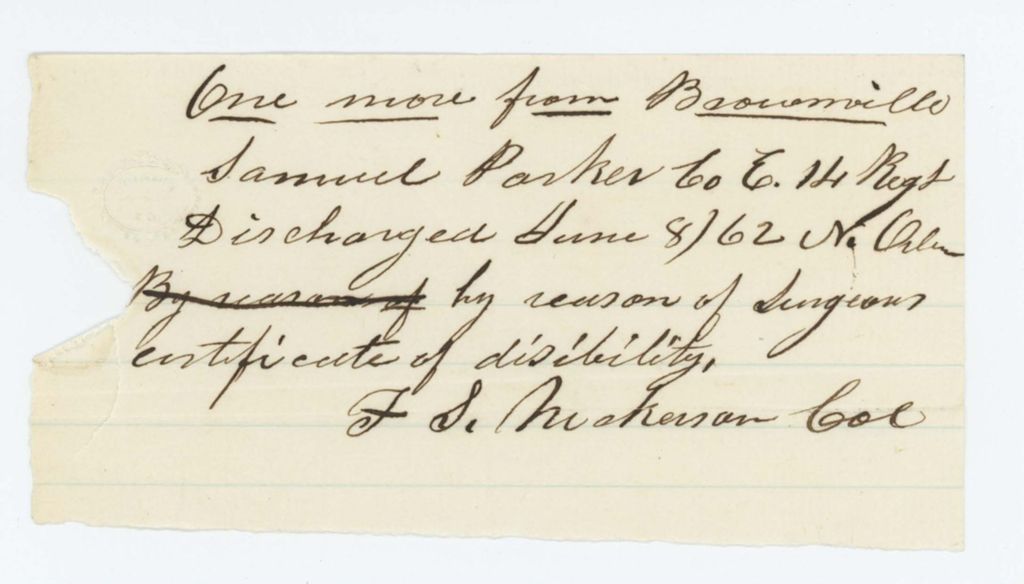 One more from Brownville
Samuel Parker Co E. 14 Regt
Discharged June 8/62 N. Orlen
By reason of by reason of Surgeons
certificate of disibility,
F S. Nickerson Col